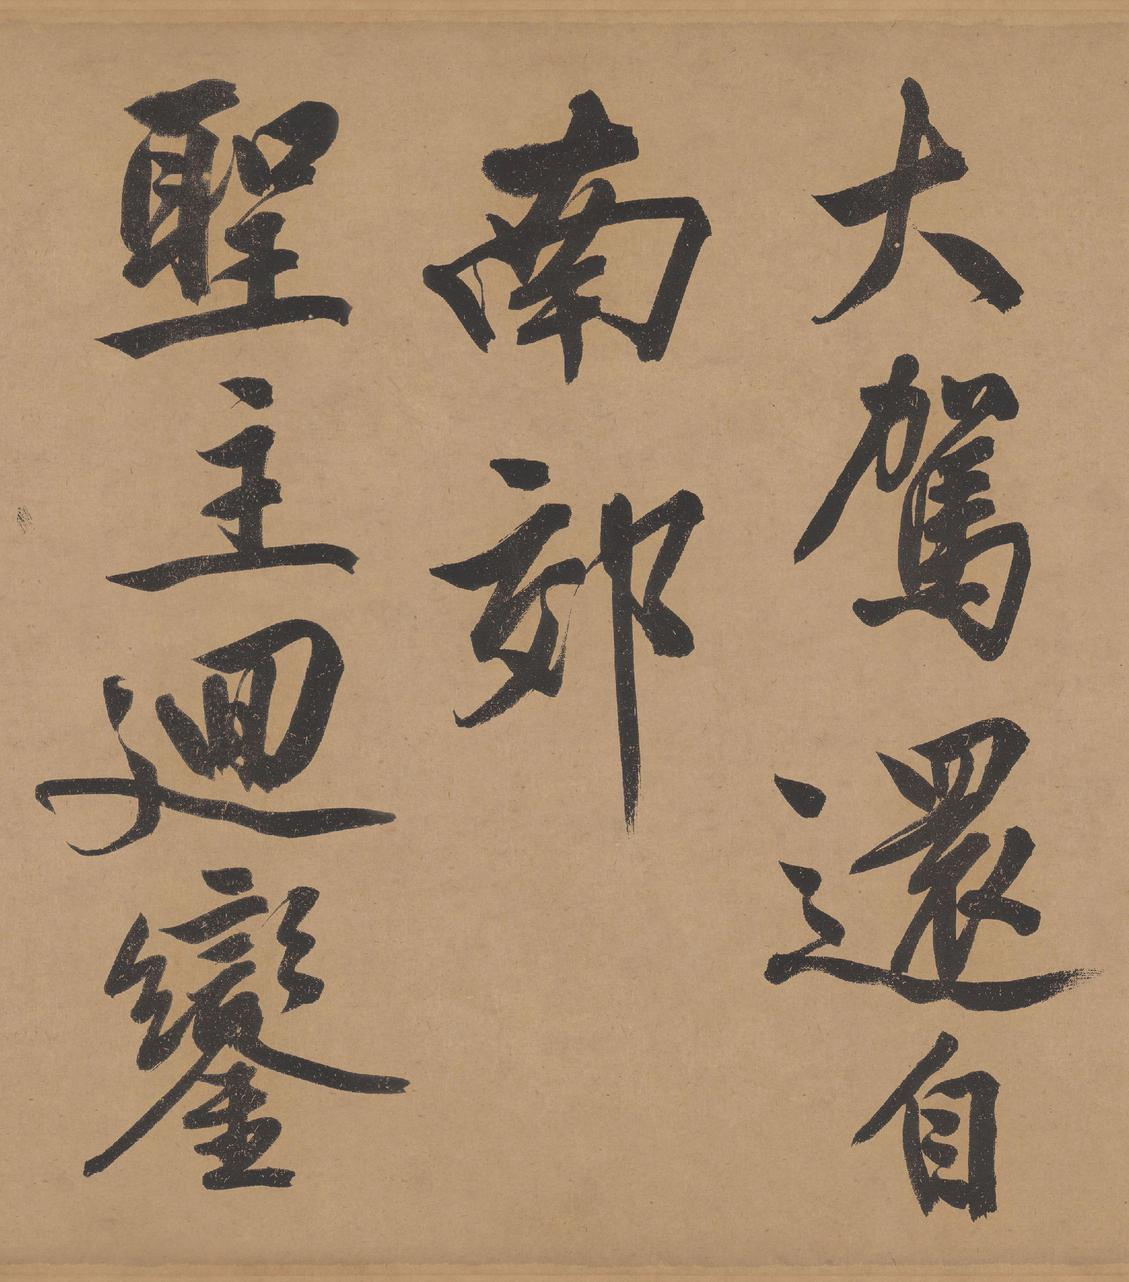 大駕還自
南郊
聖主迴鑾